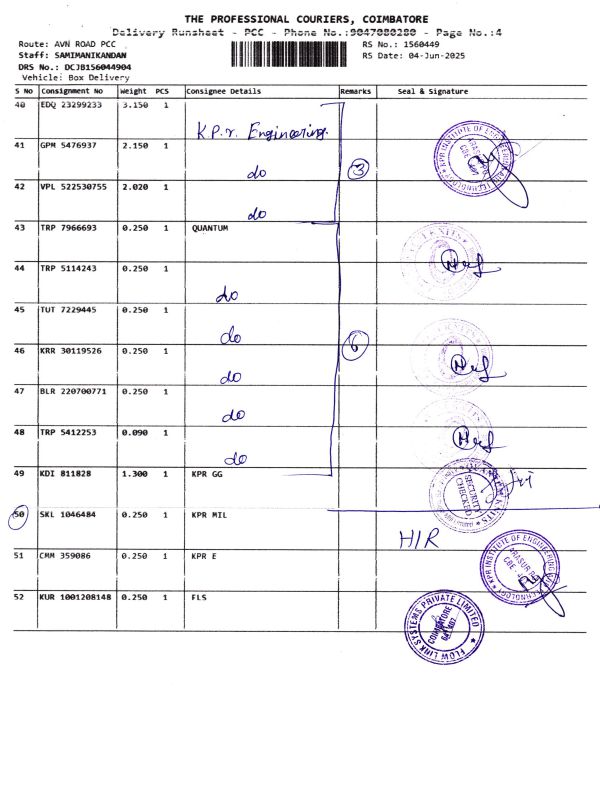 THE PROFESSIONAL COURIERS, COIMBATORE
Delivery Runsheet - PCC - Phone No.:9047080280 - Page No.:4
Route: AVN ROAD PCC
RS No.: 1560449
Staff: SAMIMANIKANDAN
RS Date: 04-Jun-2025
DRS No.: DCJB156044904
Vehicle: Box Delivery
S No Consignment No Weight PCS Consignee Details Remarks Seal & Signature
40 EDQ 23299233 3.150 1
K.P.r. Engineering.
41 GPM 5476937 2.150 1
do 3
42 VPL 522530755 2.020 1
do
43 TRP 7966693 0.250 1 QUANTUM
44 TRP 5114243 0.250 1
do
45 TUT 7229445 0.250 1
do 6
46 KRR 30119526 0.250 1
do
47 BLR 220700771 0.250 1
do
48 TRP 5412253 0.090 1
do
49 KDI 811828 1.300 1 KPR GG
SECURITY
CHECKED
50 SKL 1046484 0.250 1 KPR MIL
H/R
51 CMM 359086 0.250 1 KPR E
52 KUR 1001208148 0.250 1 FLS
KPR INSTITUTE OF ENGINEERING
TECHNOLOGY
KPR INSTITUTE OF ENGINEERING
TECHNOLOGY
FLOW LINK SYSTEMS PRIVATE LIMITED
COIMBATORE